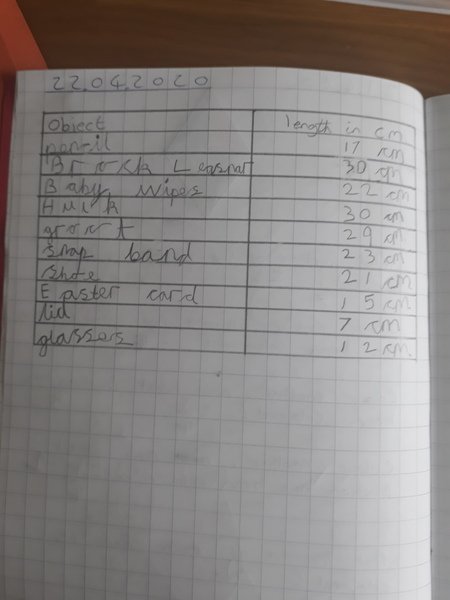 22 04 2020
Object length in cm
pencil 17 cm
Brock Lesnar 30 cm
Baby wipes 22 cm
Hulk 30 cm
groot 29 cm
snap band 23 cm
shoe 21 cm
Easter card 15 cm
lid 7 cm
glasses 12 cm